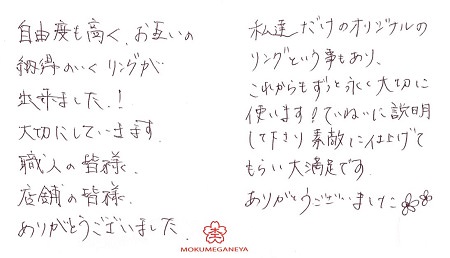 自由度も高く、お互いの
納得のいくリングが
出来ました！
大切にしていきます。
職人の皆様、
店舗の皆様、
ありがとうございました。
私達だけのオリジナルの
リングという事もあり、
これからもずっと永く大切に
使います！ていねいに説明
して下さり素敵に仕上げて
もらい大満足です。
ありがとうございました
MOKUMEGANEYA